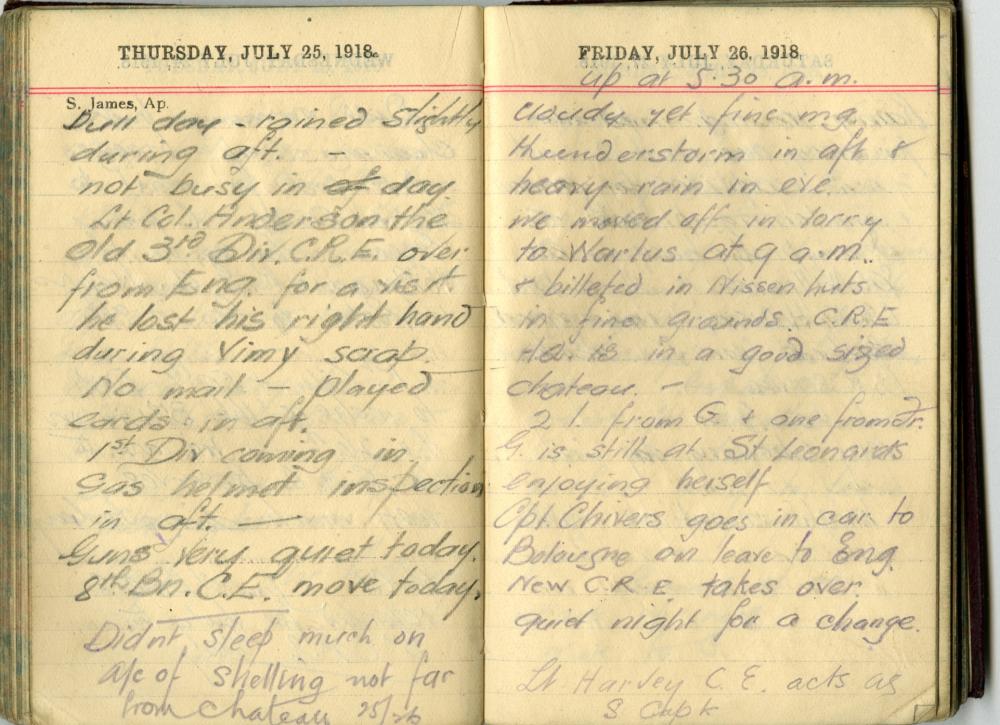 THURSDAY, JULY 25, 1918.
S. James, Ap.
Dull day - rained slightly
during aft. -
not busy in day
Lt Col. Anderson the
Old 3rd Div. C.R.E. over
from Eng. for a visit
he lost his right hand
during Vimy scrap.
No mail - played
cards in aft.
1st Div coming in.
Gas helmet inspection
in aft. —
Guns very quiet today.
8th Bn. C.E. move today.
Didnt sleep much on
a/c of shelling not far
from chateau 25/26
FRIDAY, JULY 26, 1918
up at 5:30 a.m.
Cloudy yet fine mg.
thunderstorm in aft &
heavy rain in eve.
we moved off in lorry
to Warlus at 9 a.m..
& billeted in Nissen huts
in fine grounds. C.R.E
HQ. is in a good sized
chateau. -
2 l. from G. & one from
G. is still at St Leonards
enjoying herself
Cpt. Chivers goes in car to
Bolougne on leave to Eng.
New C.R.E. takes over.
quiet night for a change.
Lt Harvey C.E. acts as